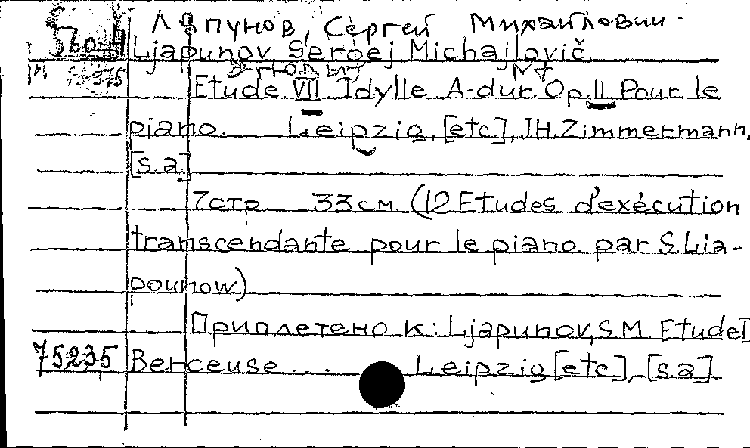 Ляпунов, Сергей Михайлович.
Ljapunov Sergej Michajlovič
Etude VII Idylle A-dur Op. 11 Pour le
piano. Leipzig, [etc], J.H. Zimmermann,
[s.a.]
7 стр 33 см (12 Etudes d'exécution
transcendante pour le piano par S. Lia-
pounow)
Приплетено к: Ljapunov, S.M. Etude I
75235 Berceuse . . . Leipzig [etc], [s.a.]